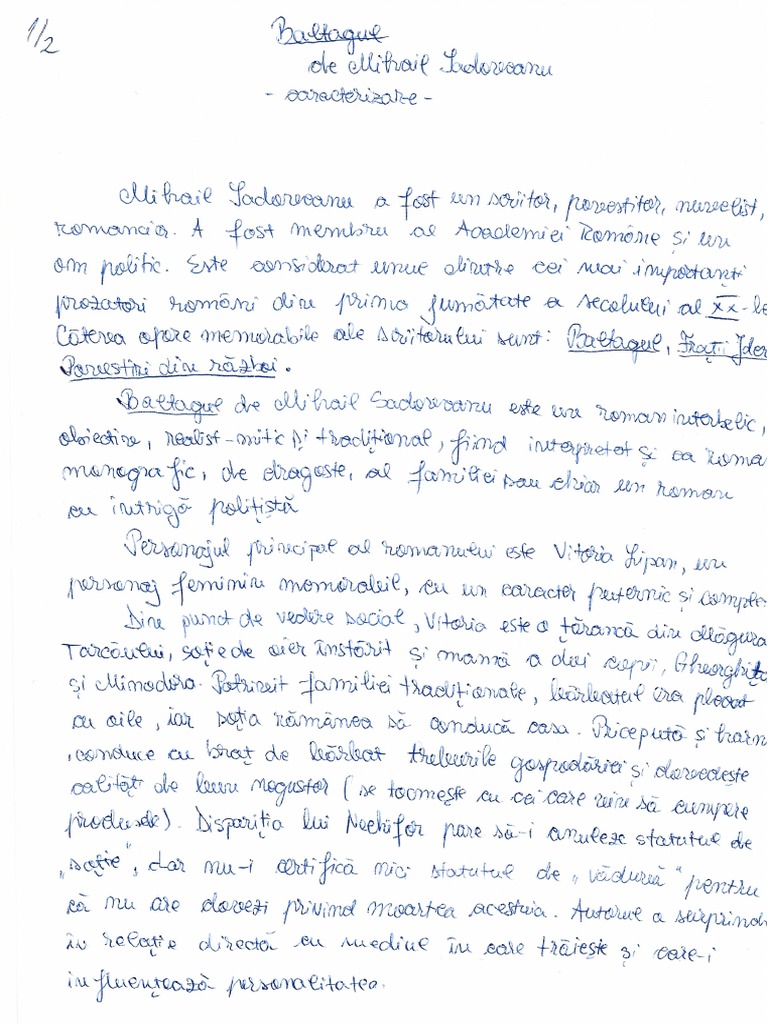 1/2
Baltagul
de Mihail Sadoveanu
- caracterizare -
Mihail Sadoveanu a fost un scriitor, povestitor, nuvelist,
romancier. A fost membru al Academiei Române și un
om politic. Este considerat unul dintre cei mai importanți
prozatori români din prima jumătate a secolului al XX-le
Câteva opere memorabile ale scriitorului sunt: Baltagul, Frații Jder
Povestiri din război.
Baltagul de Mihail Sadoveanu este un roman interbelic,
obiectiv, realist-mitic și tradițional, fiind interpretat și ca roma
monografic, de dragoste, al familiei sau chiar un roman
cu intrigă polițistă
Personajul principal al romanului este Vitoria Lipan, un
personaj feminin memorabil, cu un caracter puternic și comple
Din punct de vedere social, Vitoria este o țărancă din Măgura
Tarcăului, soție de oier înstărit și mamă a doi copii, Gheorghiță
și Minodora. Potrivit familiei tradiționale, bărbatul era plecat
cu oile, iar soția rămânea să conducă casa. Pricepută și harn
, conduce cu braț de bărbat treburile gospodăriei și dovedește
calități de bun negustor (se tocmește cu cei care vin să cumpere
produsele). Dispariția lui Nechifor pare să-i anuleze statutul de
„soție", dar nu-i certifică nici statutul de „văduvă" pentru
că nu are dovezi privind moartea acestuia. Autorul a surprind
în relație directă cu mediul în care trăiește și care-i
influențează personalitatea.